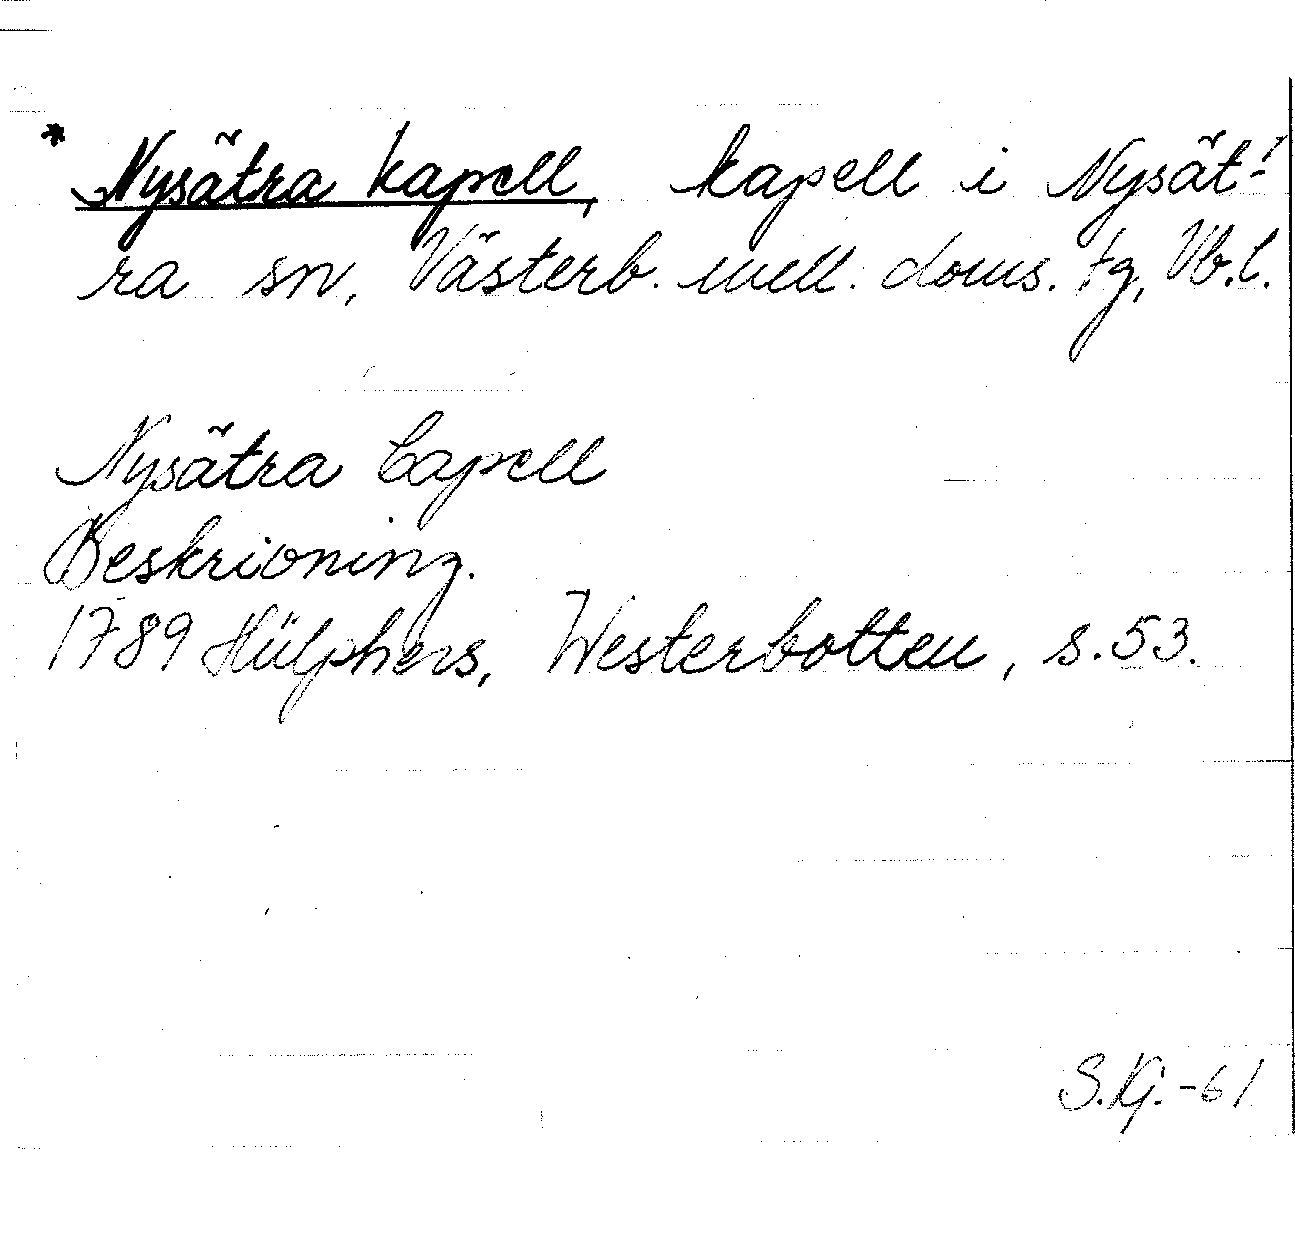 * Nysätra kapell, kapell i Nysät-
ra sn, Västerb. mell. doms. tg, Vb.l.
Nysätra Capell
Beskrivning.
1789 Hülphers, Westerbotten, s.53.
S.Kg.-61